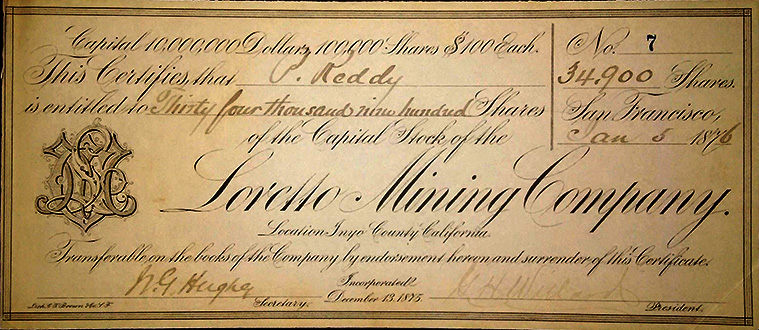 Capital 10,000,000 Dollars, 100,000 Shares $100 Each.
No. 7
This Certifies that P. Reddy
34,900 Shares.
is entitled to Thirty four thousand nine hundred Shares
San Francisco,
of the Capital Stock of the
Jan 5 1876
Loretto Mining Company.
Location Inyo County California.
Transferable on the books of the Company by endorsement hereon and surrender of this Certificate.
Incorporated
Secretary. December 13, 1875. President.